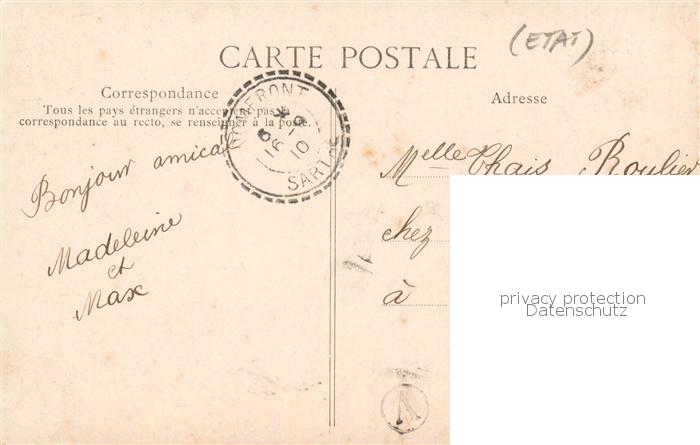 (ETAT)
CARTE POSTALE
Correspondance
Tous les pays étrangers n'acceptent pas la
correspondance au recto, se renseigner à la poste.
Bonjour amical
Madeleine
et
Max
SARTHE
16
10
Adresse
Melle Thais Roulier
chez
à
privacy protection
Datenschutz